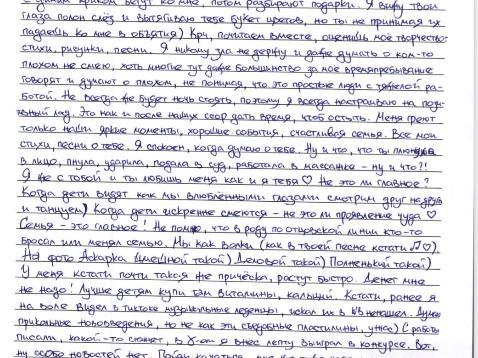 с диким криком бегут ко мне, потом разбирают подарки. Я вижу твои
глаза полон слёз и вытягиваю тебе букет цветов, но ты не принимая их
падаешь ко мне в объятия) Крч, почитаем вместе, оценишь моё творчество-
стихи, рисунки, песни. Я никому зла не держу и даже думать о ком-то
плохом не смею, хоть многие тут даже большинство за моё времяпребывание
говорят и думают о плохом, не понимая, что это простые люди с тяжелой ра-
ботой. Не всегда же будет ночь стоять, поэтому я всегда настраиваю на поз-
вный лад. Это как и после наших ссор дать время, чтоб остыть. Меня греют
только наши яркие моменты, хорошие события, счастливая семья. Все мои
стихи, песни о тебе. Я спокоен, когда думаю о тебе. Ну и что, что ты плюнула
в лицо, пнула, ударила, подала в суд, работала в массажке - ну и что?!
Я же с тобой и ты любишь меня как и я тебя ♡ Не это ли главное?
Когда дети видят как мы влюблёнными глазами смотрим друг на друга
и танцуем) Когда дети искренне смеются - не это ли проявление чуда ♡
Семья - это главное! Не помню, что в роду по отцовской линии кто-то
бросал или менял семью. Мы как волки (как в твоей песне кстати ♫♡).
На фото Аскарка (смешной такой) Деловой такой) Полненький такой)
У меня кстати почти такая же причёска, растут быстро. Денег мне
не надо! Лучше детям купи там витамины, кальций. Кстати, ранее я
на воле видел в тиктоке музыкальные леденцы, искал их в КБ не нашел. Думаю
прикольные нововведения, но не как эти съедобные пластилины, утиса) С работы
писали, какой-то сюжет, в
я внес лепту выиграл в конкурсе. Вот,
ну особо новостей нет.